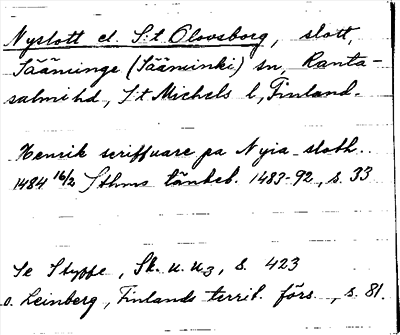 Nyslott el. S:t Olovsborg, slott,
Sääminge (Sääminki) sn, Ranta-
salmi hd, S:t Michels l, Finland.
Henrik scriffuare pa Nyia sloth..
1484 16/2 Sthms tänkeb. 1483-92, s. 33
Se Styffe, Sk. u. u3, s. 423
o. Leinberg, Finlands territ. förs., s. 81.